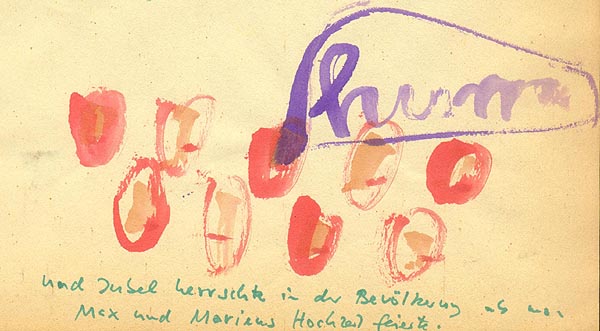 hurra
und Jubel herrschte in der Bevölkerung als man
Max und Mariens Hochzeit feierte.